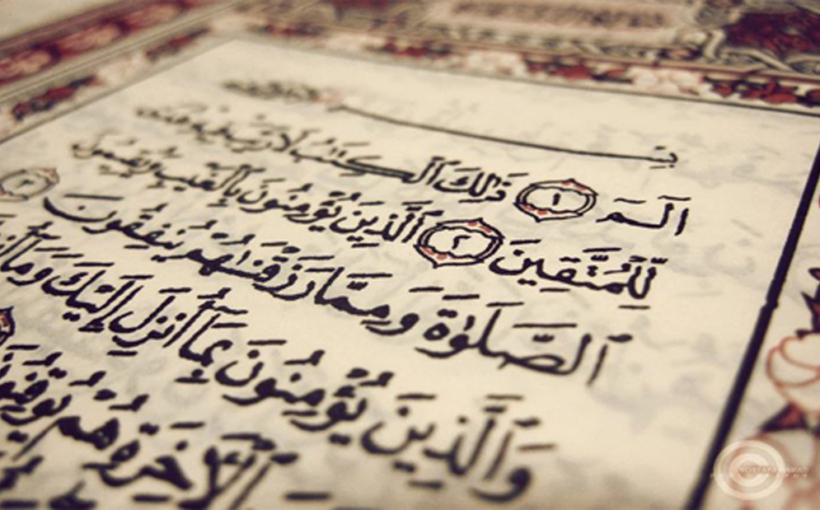 الٓمٓ ١ ذَٰلِكَ ٱلْكِتَٰبُ لَا رَيْبَ فِيهِ هُدًى
لِّلْمُتَّقِينَ ٢ ٱلَّذِينَ يُؤْمِنُونَ بِٱلْغَيْبِ وَيُقِيمُونَ
ٱلصَّلَوٰةَ وَمِمَّا رَزَقْنَٰهُمْ يُنفِقُونَ ٣
وَٱلَّذِينَ يُؤْمِنُونَ بِمَآ أُنزِلَ إِلَيْكَ وَمَآ
ٱلْءَاخِرَةِ هُمْ يُوقِنُونَ